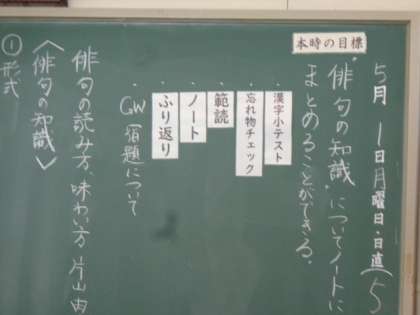 本時の目標
5月1日月曜日・日直(5
“俳句の知識”についてノートに
まとめることができる。
・漢字小テスト
・忘れ物チェック
・範読
・ノート
・ふり返り
・GW宿題について
俳句の読み方、味わい方 片山由
〈俳句の知識〉
①形式